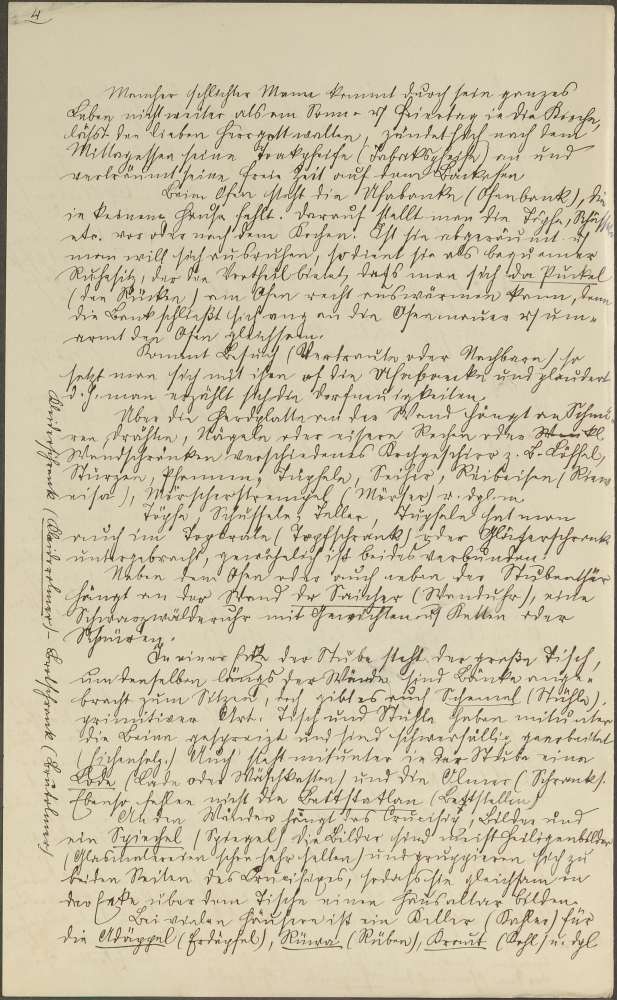 4
Mancher schlichter Mann kommt durch sein ganzes
Leben nicht weiter als am Sonn- u Feiertag in die Kirche,
lässt den lieben Herrgott walten, zündet sich nach dem
Mittagessen seine Toakpfeife (Tabakspfeife) an und
verträumt seine freie Zeit auf dem Backofen
Beim Ofen steht die Ufabanke (Ofenbank), die
in keinem Hause fehlt. Darauf stellt man die Töphe, Schüsseln
etc. vor oder nach dem Kochen. Ist sie abgeräumt u
man will sich ausruhen, so dient sie als bequemer
Ruhesitz, der den Vortheil bietet, dass man sich da Puckel
(den Rücken) am Ofen recht auswärmen kann, denn
die Bank schließt sich eng an die Ofenmauer u um-
armt den Ofen gleichsam.
Kommt Besuch (Vertraute oder Nachbarn) so
setzt man sich mit ihm of die Ufabanke und plaudert
d. h. man erzählt sich die Dorfneuigkeiten.
Über die Herdplatte an der Wand hängt an Schnü-
ren, Drähten, Nägeln oder eisern Rechen oder
Wandschränken verschiedenes Kochgeschirr z. B. Löffel,
Stürzen, Pfannen, Tüpheln, Seiher, Reibeisen (Riew
eisa), Mörscherstrempel (Mörser) u. dgl. m
Töphe, Schüsseln, Teller, Tüpheln hat man
auch im Topbrate (Topfschrank) oder Gläserschrank
untergebracht, gewöhnlich ist beides verbunden.
Neben dem Ofen oder auch neben der Stubenthür
hängt an der Wand der Saicher (Wanduhr), eine
Schwarzwälderuhr mit Gewichten u Ketten oder
Schnüren.
In einer Ecke der Stube steht der große Tisch,
um denselben längs der Wände sind Bänke ange-
bracht zum Sitzen, doch gibt es auch Schemel (Stühle),
primitiver Art. Tisch und Stühle haben mitunter
die Beine gespreizt und sind schwerfällig gearbeitet
(Eichenholz.) Auch steht mitunter in der Stube eine
Lode (Lade oder Wäschkasten) und die Olmer (Schrank).
Ebenso fehlen nicht die Bettstatlan (Bettstellen)
An den Wänden hängt das Crucifix, Bilder und
ein Spiechel (Spiegel) Die Bilder sind meist Heiligenbilder
(Glasmalereien schon sehr selten) und gruppieren sich zu
beiden Seiten des Crucifixes, sodass sie gleichsam in
der Ecke über dem Tische einen Hausaltar bilden.
Bei vielen Häusern ist ein Keller (Kaller) für
die Adäppel (Erdäpfel), Rüwa (Rüben), Kraut (Kohl) u. dgl
Kleiderschrank (Kleiderolmer) - Brotschrank (Brutolmer)